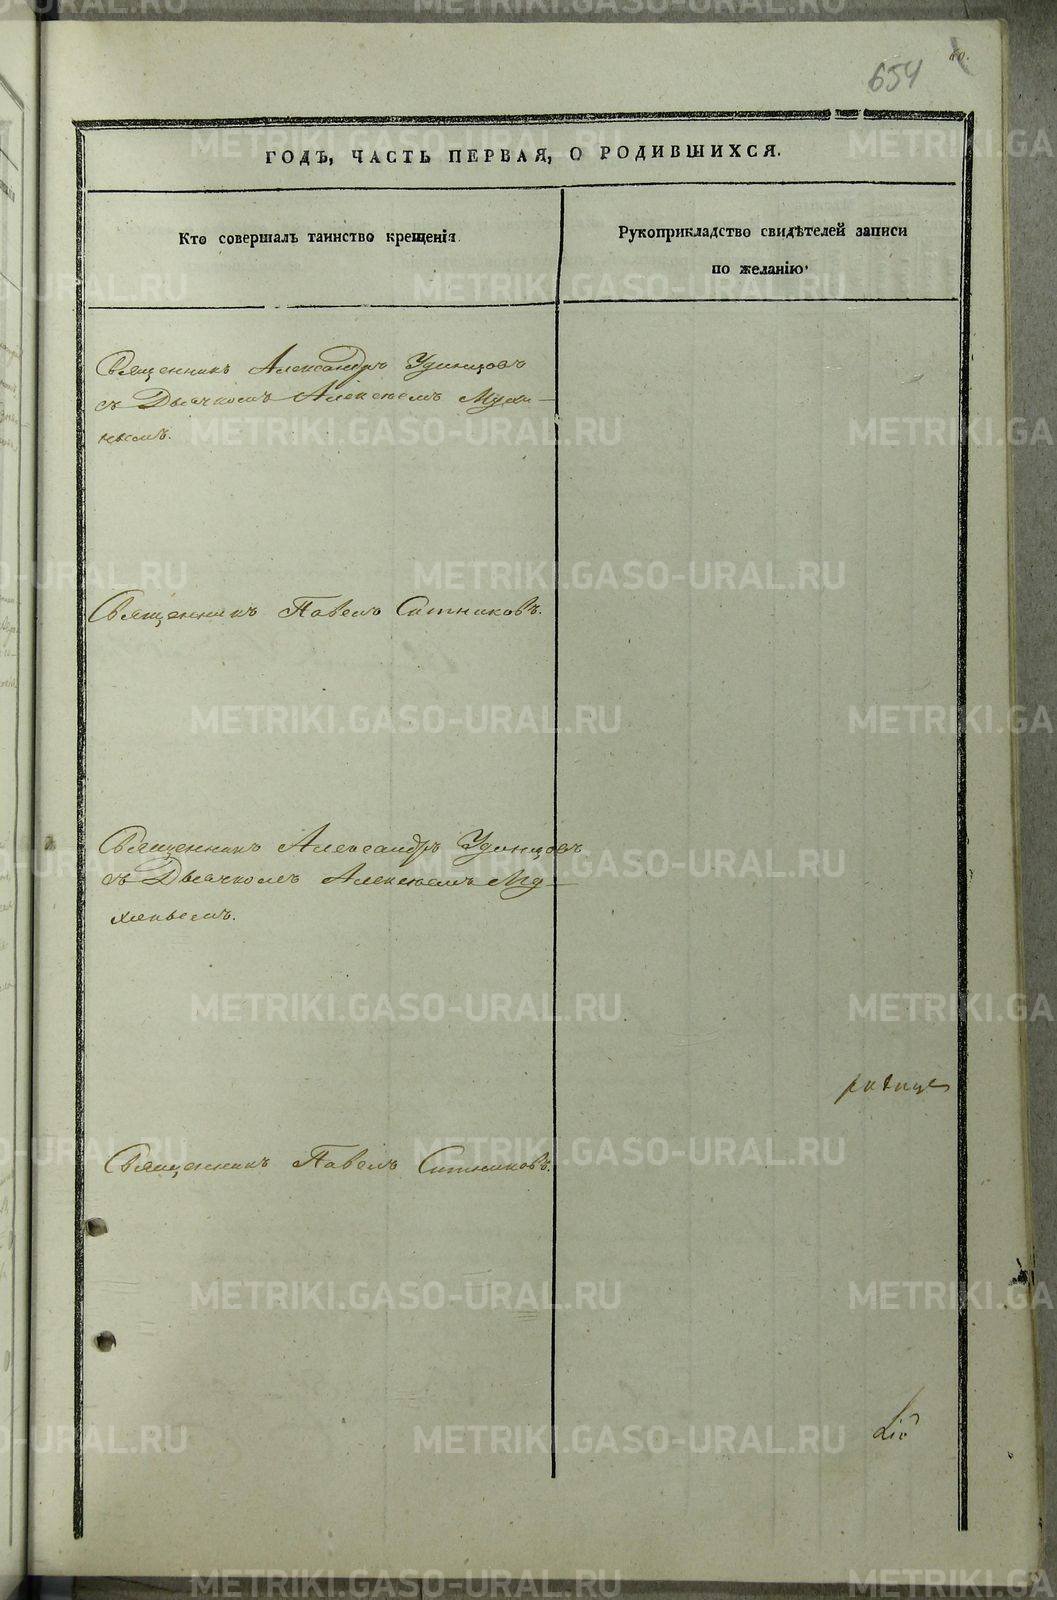 654
60.
ГОДЪ, ЧАСТЬ ПЕРВАЯ, О РОДИВШИХСЯ.
Кто совершалъ таинство крещенія.
Рукоприкладство свидѣтелей записи
по желанію.
Священникъ Александръ Удинцовъ
съ Дьячкомъ Алексѣемъ Мухи-
нымъ.
Священникъ Павелъ Ситниковъ.
Священникъ Александръ Удинцовъ
съ Дьячкомъ Алексѣемъ Му-
хинымъ.
Священникъ Павелъ Ситниковъ.
METRIKI.GASO-URAL.RU